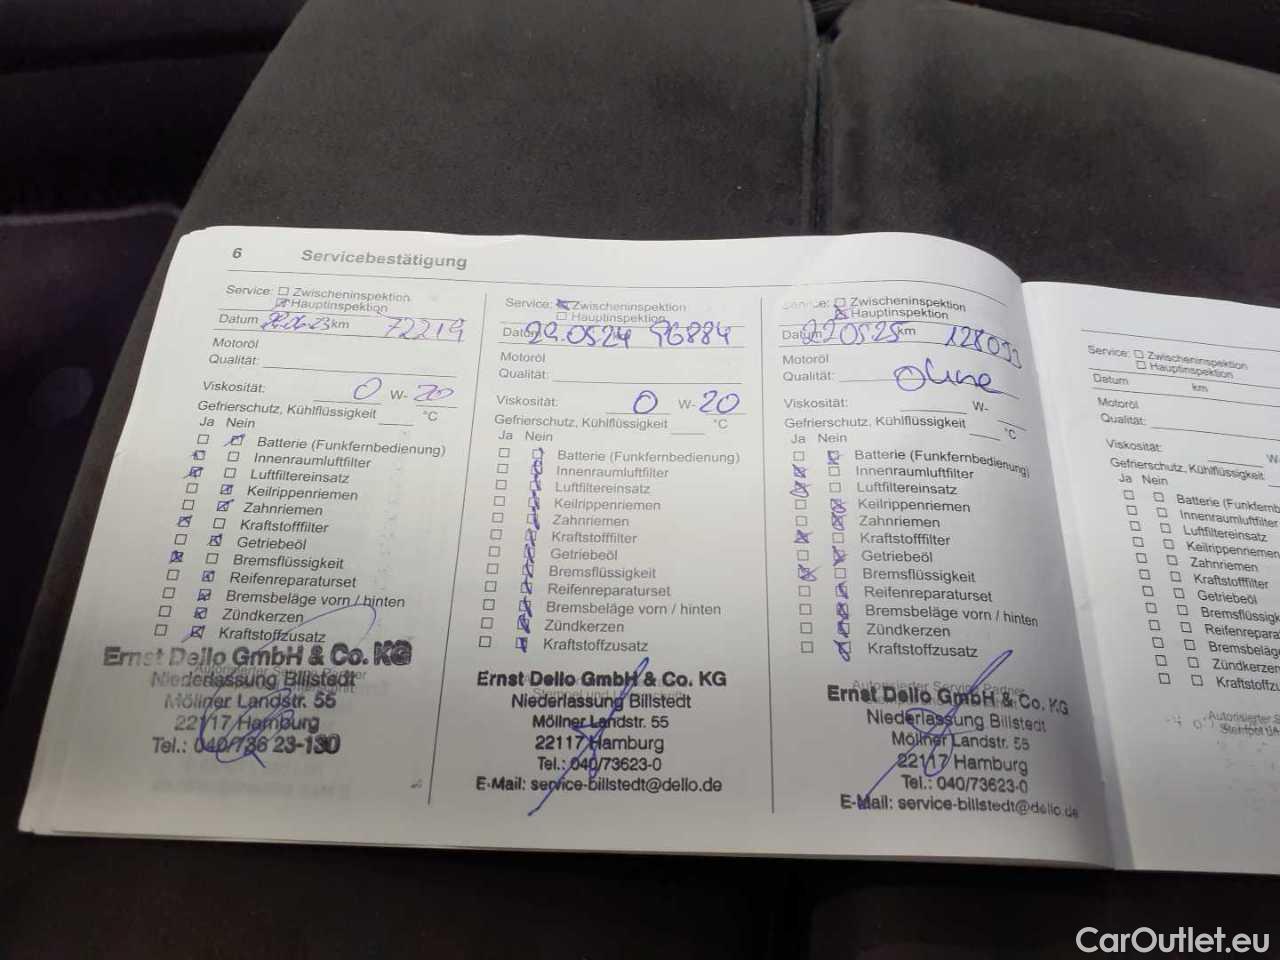 6 Servicebestätigung
Service: Zwischeninspektion
Hauptinspektion
Datum 06.23 km 72219
Motoröl
Qualität:
Viskosität: 0 W- 20
Gefrierschutz, Kühlflüssigkeit °C
Ja Nein
Batterie (Funkfernbedienung)
Innenraumluftfilter
Luftfiltereinsatz
Keilrippenriemen
Zahnriemen
Kraftstofffilter
Getriebeöl
Bremsflüssigkeit
Reifenreparaturset
Bremsbeläge vorn / hinten
Zündkerzen
Kraftstoffzusatz
Ernst Dello GmbH & Co. KG
Niederlassung Billstedt
Möllner Landstr. 55
22117 Hamburg
Tel.: 040/736 23-130
Service: Zwischeninspektion
Hauptinspektion
Datum 29.05.24 96884
Motoröl
Qualität:
Viskosität: 0 W- 20
Gefrierschutz, Kühlflüssigkeit °C
Ja Nein
Batterie (Funkfernbedienung)
Innenraumluftfilter
Luftfiltereinsatz
Keilrippenriemen
Zahnriemen
Kraftstofffilter
Getriebeöl
Bremsflüssigkeit
Reifenreparaturset
Bremsbeläge vorn / hinten
Zündkerzen
Kraftstoffzusatz
Ernst Dello GmbH & Co. KG
Niederlassung Billstedt
Möllner Landstr. 55
22117 Hamburg
Tel.: 040/73623-0
E-Mail: service-billstedt@dello.de
Service: Zwischeninspektion
Hauptinspektion
Datum 22.05.25 km
Motoröl
Qualität: Ohne
Viskosität: W-
Gefrierschutz, Kühlflüssigkeit °C
Ja Nein
Batterie (Funkfernbedienung)
Innenraumluftfilter
Luftfiltereinsatz
Keilrippenriemen
Zahnriemen
Kraftstofffilter
Getriebeöl
Bremsflüssigkeit
Reifenreparaturset
Bremsbeläge vorn / hinten
Zündkerzen
Kraftstoffzusatz
Autorisierter Service Partner
Ernst Dello GmbH & Co. KG
Niederlassung Billstedt
Möllner Landstr. 55
22117 Hamburg
Tel.: 040/73623-0
E-Mail: service-billstedt@dello.de
Service: Zwischeninspektion
Hauptinspektion
Datum km
Motoröl
Qualität:
Viskosität: W-
Gefrierschutz, Kühlflüssigkeit
Ja Nein
Batterie (Funkfernb
Innenraumluftfilter
Luftfiltereinsatz
Keilrippenriemen
Zahnriemen
Kraftstofffilter
Getriebeöl
Bremsflüssigk
Reifenrepara
Bremsbeläge
Zündkerzen
Kraftstoffzu
Autorisierter S
CarOutlet.eu